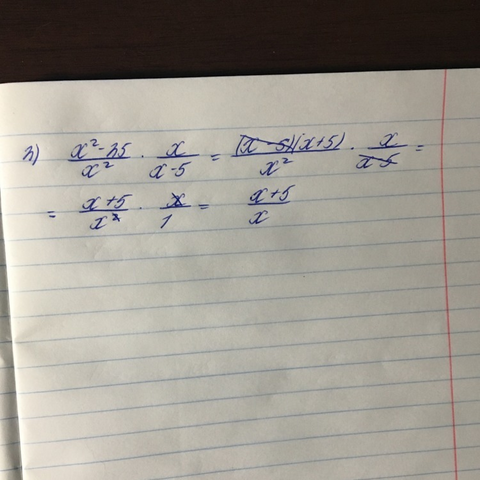 з) (x²-25)/x² · x/(x-5) = ((x-5)(x+5))/x² · x/(x-5) =
= (x+5)/x² · x/1 = (x+5)/x